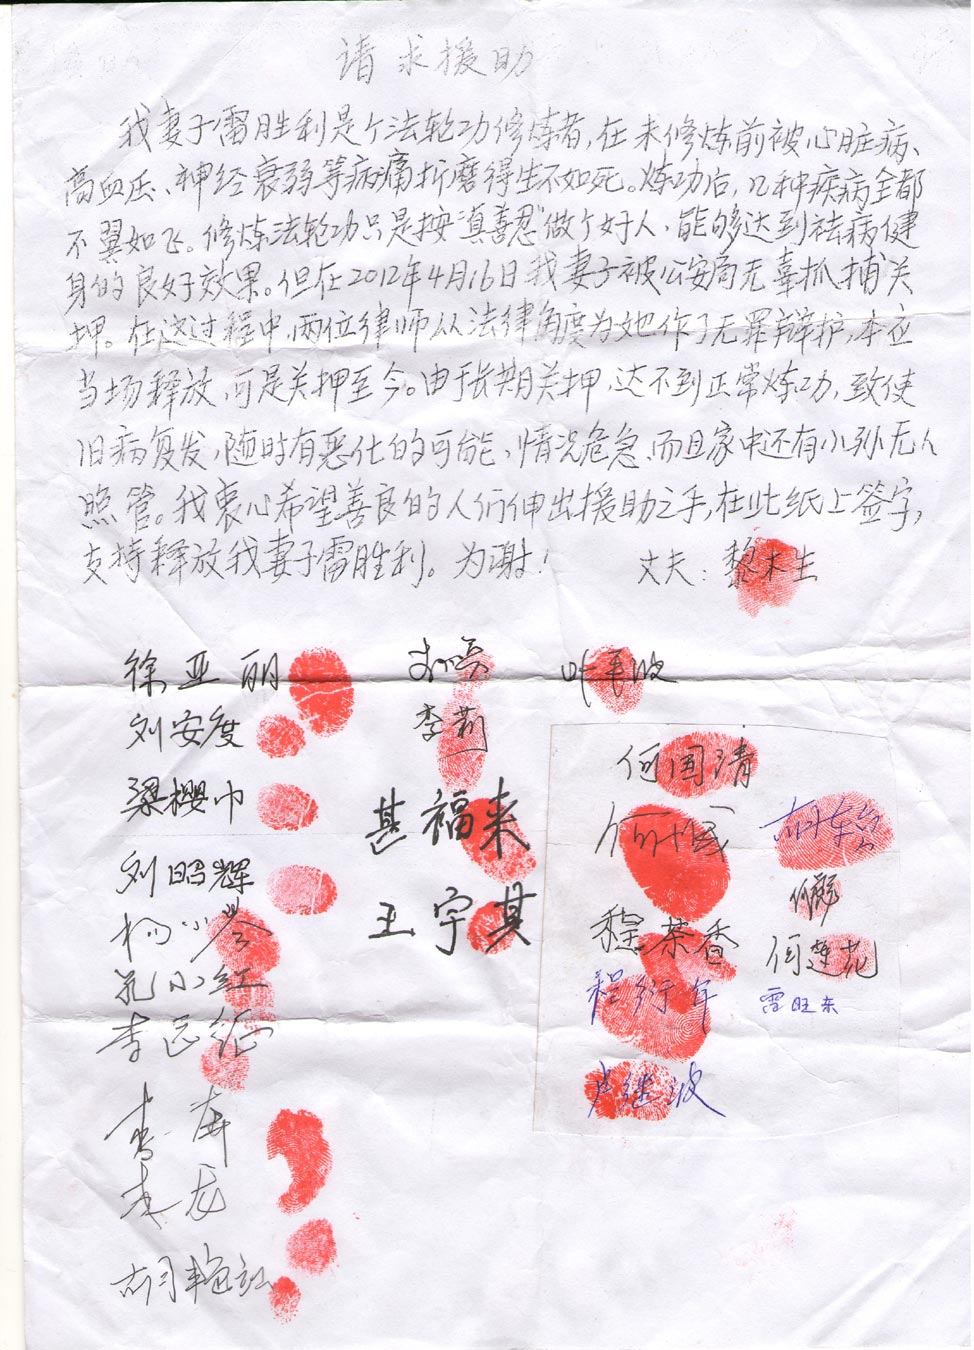 请求援助
我妻子雷胜利是个法轮功修炼者,在未修炼前被心脏病、
高血压、神经衰弱等病痛折磨得生不如死。炼功后,几种疾病全都
不翼如飞。修炼法轮功只是按“真善忍”做个好人,能够达到祛病健
身的良好效果。但在2012年4月16日我妻子被公安局无辜抓捕关
押。在这过程中,两位律师从法律角度为她作了无罪辩护,本应
当场释放,可是关押至今。由于长期关押,达不到正常炼功,致使
旧病复发,随时有恶化的可能、情况危急、而且家中还有小孙无人
照管。我衷心希望善良的人们伸出援助之手,在此纸上签字,
支持释放我妻子雷胜利。为谢!
丈夫:黎木生
徐亚丽
刘安度 李莉
何国清
梁樱巾
甚福来
刘昭辉
王宇其
茶香 何莲花
孔小红
程衍年 雷旺东
李正纪
卢继波
李龙
胡艳红